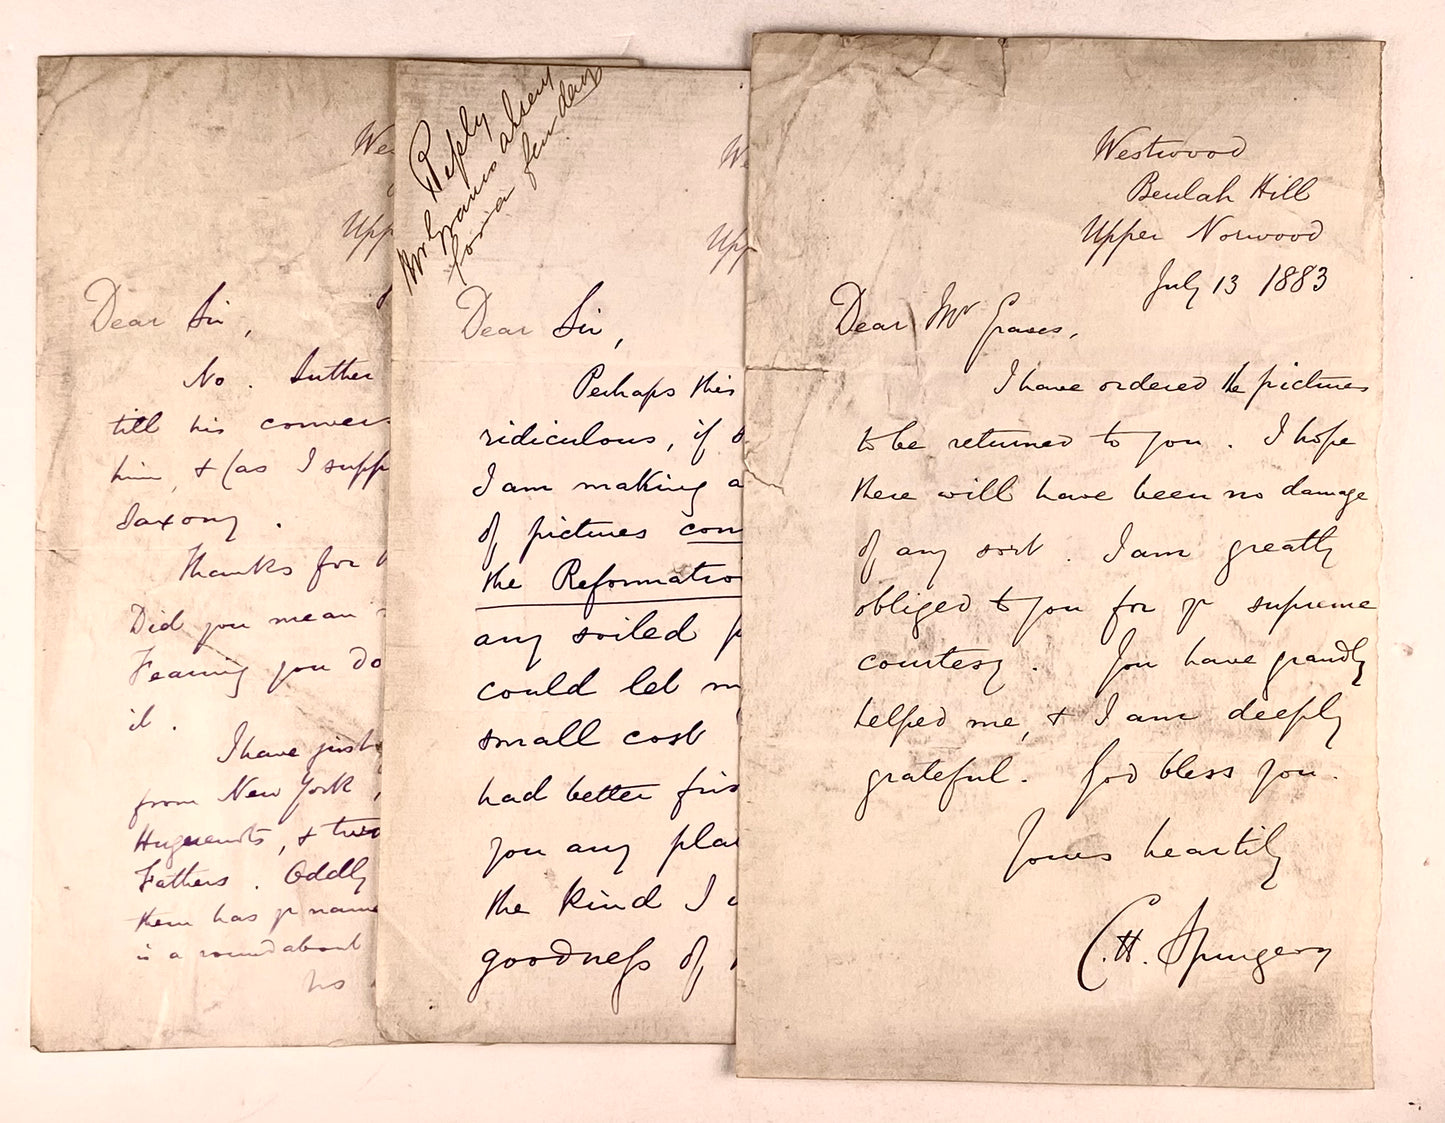 We
Upp
Dear Sir,
No. Luther
till his convers
him, & (as I supp
Saxony.
Thanks for
Did you mean
Fearing you do
it.
I have just
from New York,
Huguenots, & two
Fathers. Oddly
them has yr name
is a roundabout
his
Reply
Mr Graves absent
for a few days
W
Upp
Dear Sir,
Perhaps this
ridiculous, if
I am making a
of pictures con
the Reformatio
any soiled p
could let m
small cost
had better firs
you any pla
the kind I
goodness of
Westwood
Beulah Hill
Upper Norwood
July 13 1883
Dear Mr Graves,
I have ordered the pictures
to be returned to you. I hope
there will have been no damage
of any sort. I am greatly
obliged to you for yr supreme
courtesy. You have grandly
helped me, & I am deeply
grateful. God bless you.
Yours heartily
C. H. Spurgeon